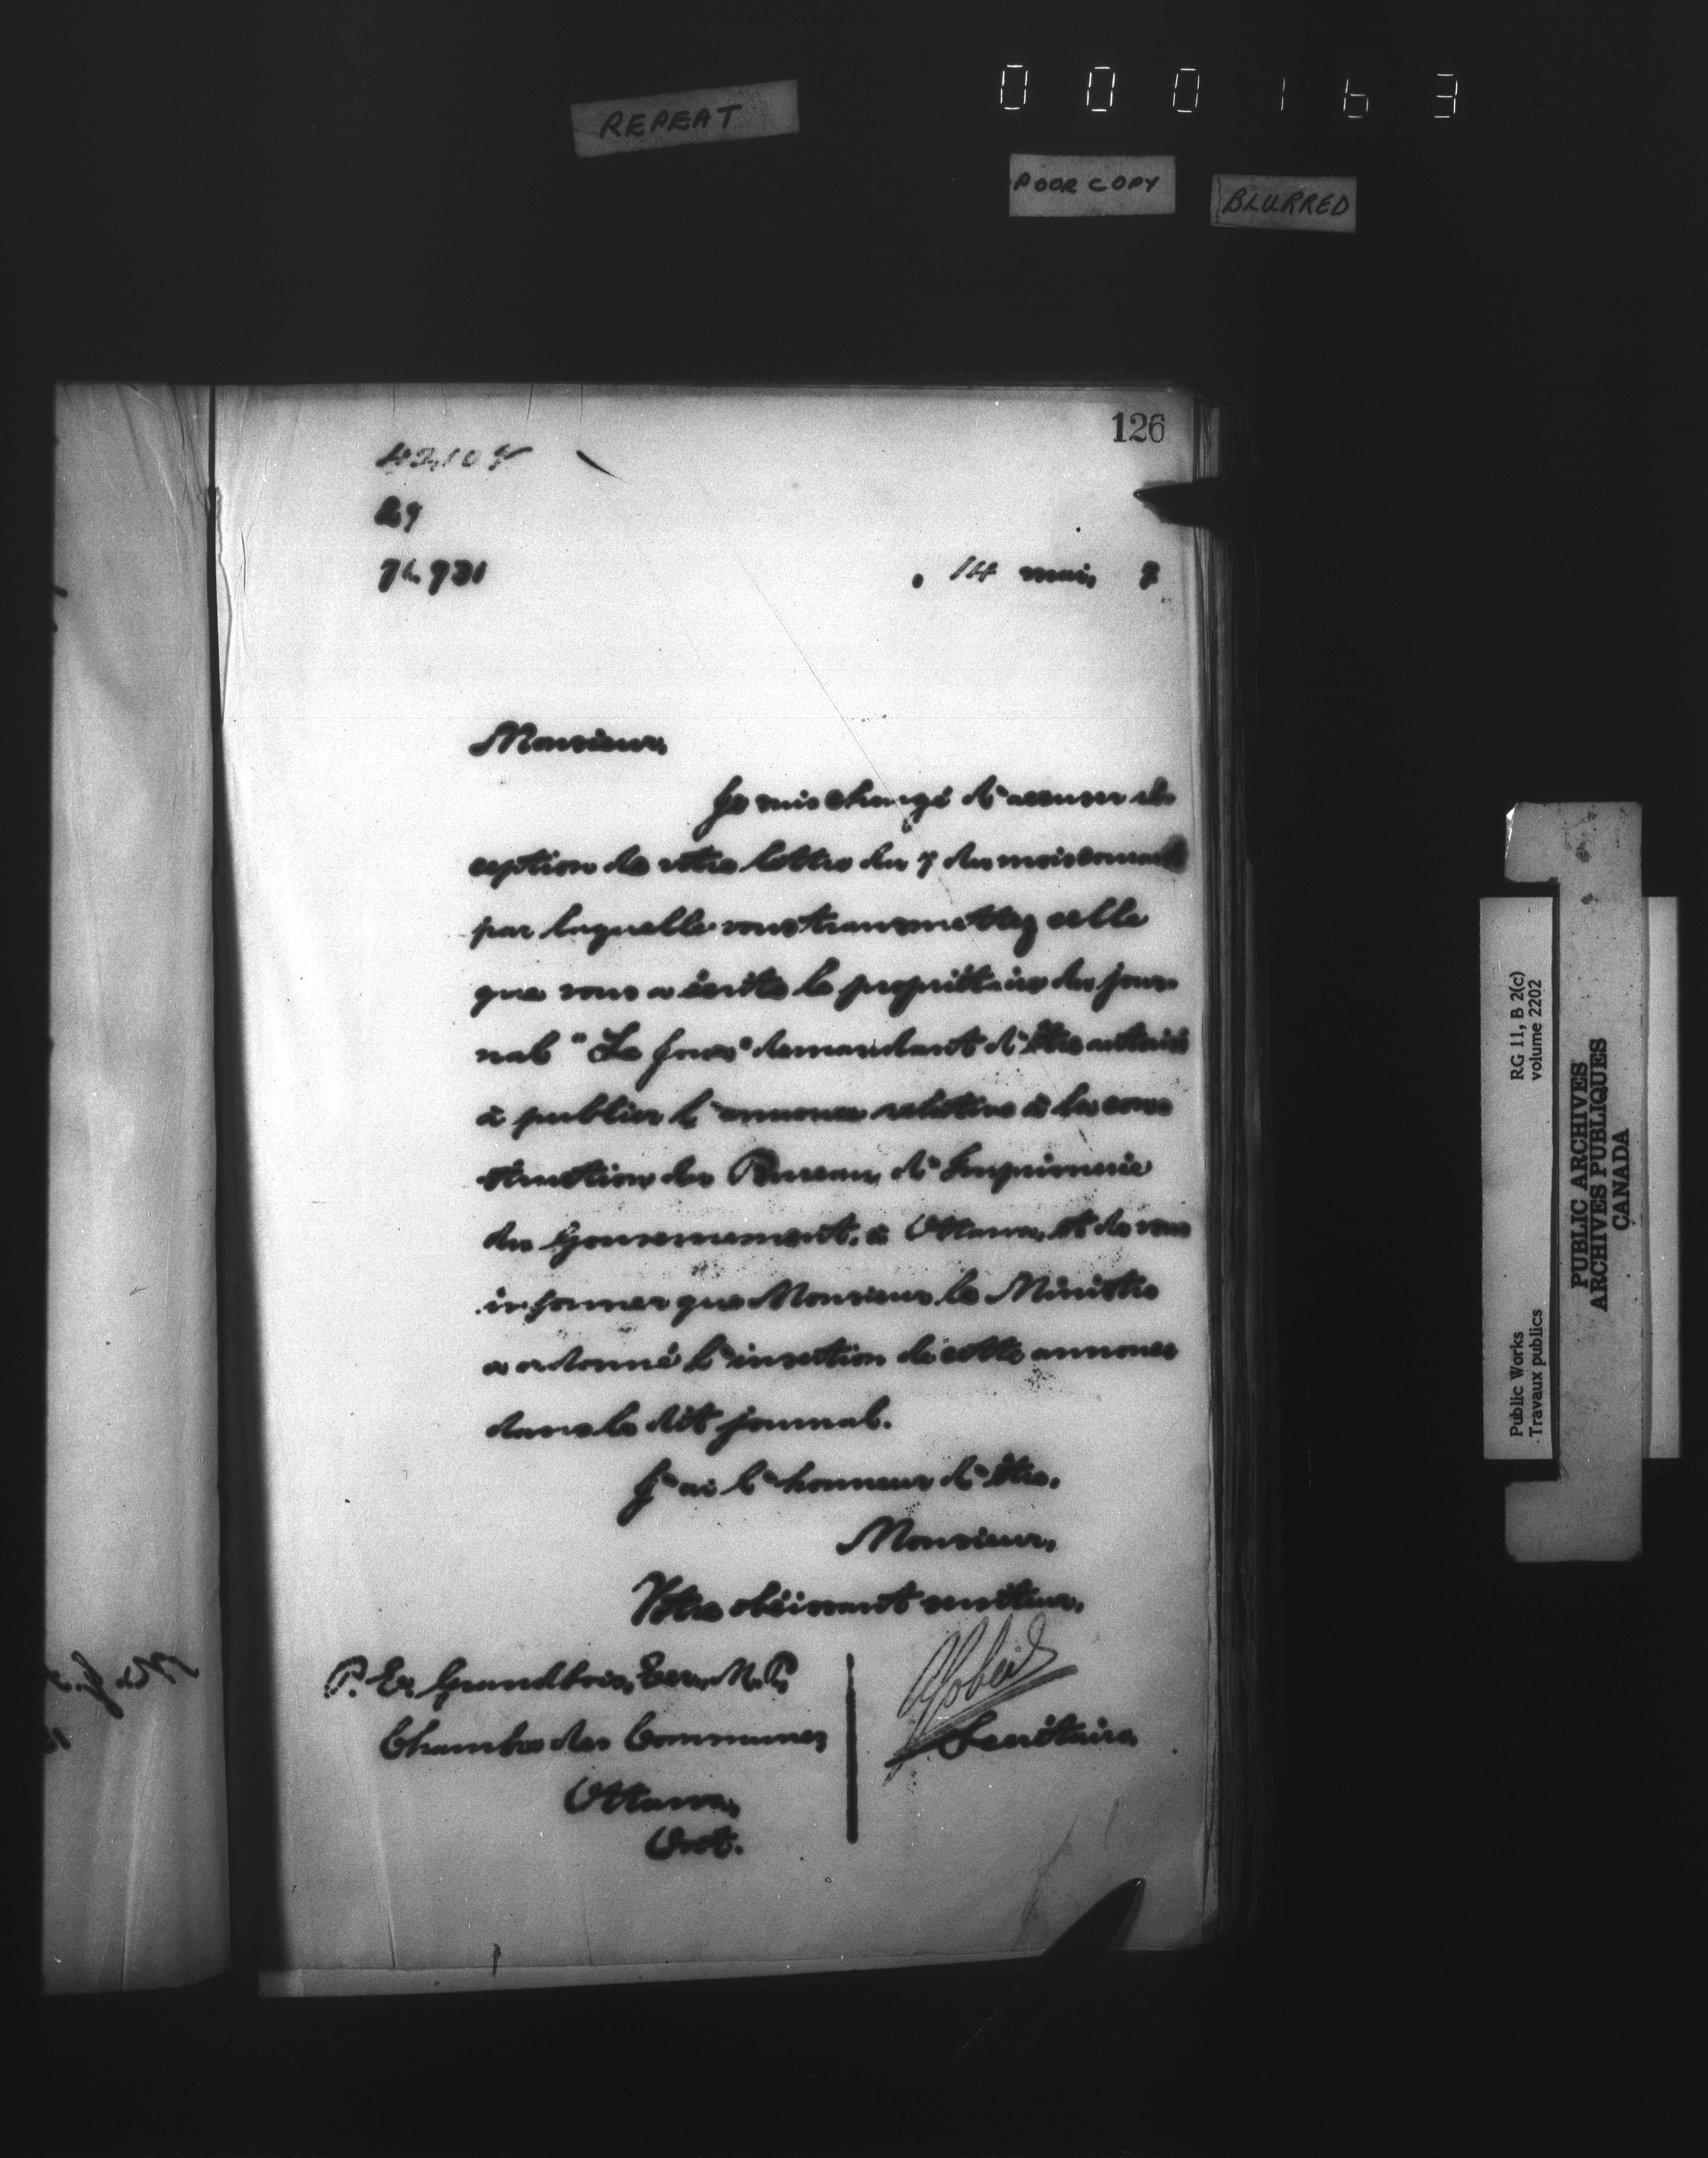 000163
REPEAT
POOR COPY
BLURRED
126
29
14 mai, 7
Monsieur,
Je suis chargé d'accuser ré-
ception de votre lettre du 7 du mois courant
par laquelle vous transmettez celle
que vous a écrite le propriétaire du jour-
nal "Le Jour" demandant d'être autorisé
à publier l'annonce relative à la cons-
truction du Bureau d'Imprimerie
du Gouvernement, à Ottawa, et de vous
informer que Monsieur le Ministre
a ordonné l'insertion de cette annonce
dans le dit journal.
J'ai l'honneur d'être,
Monsieur,
Votre obéissant serviteur,
P. E. Grandbois, Ecr., M.P.
Chambre des Communes
Ottawa,
Ont.
Secrétaire
Public Works
Travaux publics
RG 11, B 2(c)
volume 2202
PUBLIC ARCHIVES
ARCHIVES PUBLIQUES
CANADA